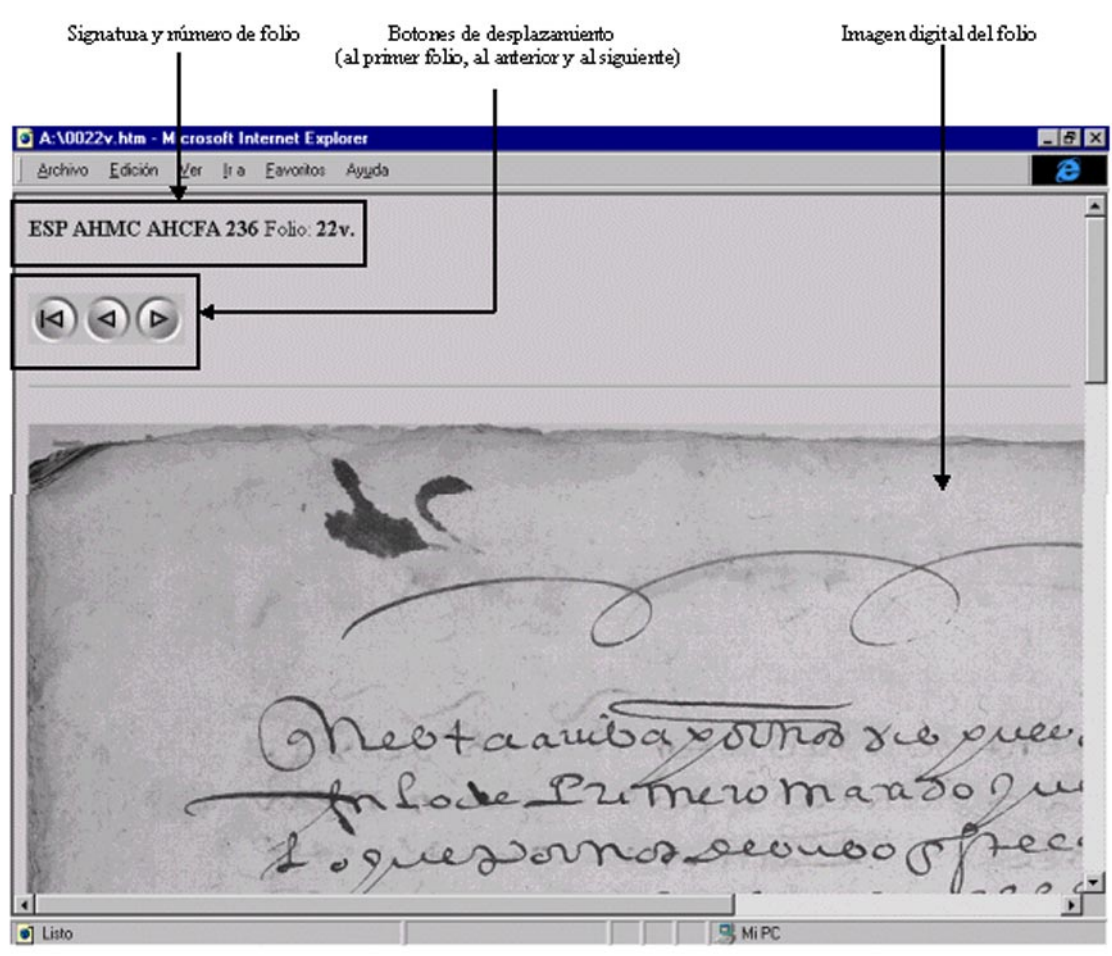 Signatura y número de folio
Botones de desplazamiento
(al primer folio, al anterior y al siguiente)
Imagen digital del folio
A:\0022v.htm - Microsoft Internet Explorer
Archivo Edición Ver Ir a Favoritos Ayuda
ESP AHMC AHCFA 236 Folio: 22v.
arriba
Primero
Listo
Mi PC